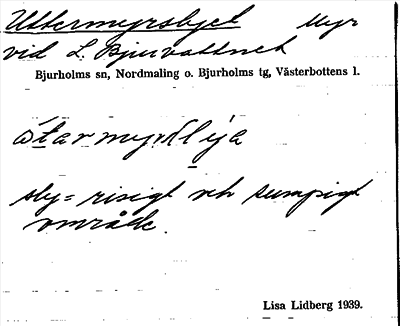 Uttermyrslyet Myr
vid L. Bjurvattnet
Bjurholms sn, Nordmaling o. Bjurholms tg, Västerbottens l.
sly = risigt och sumpigt
område.
Lisa Lidberg 1939.